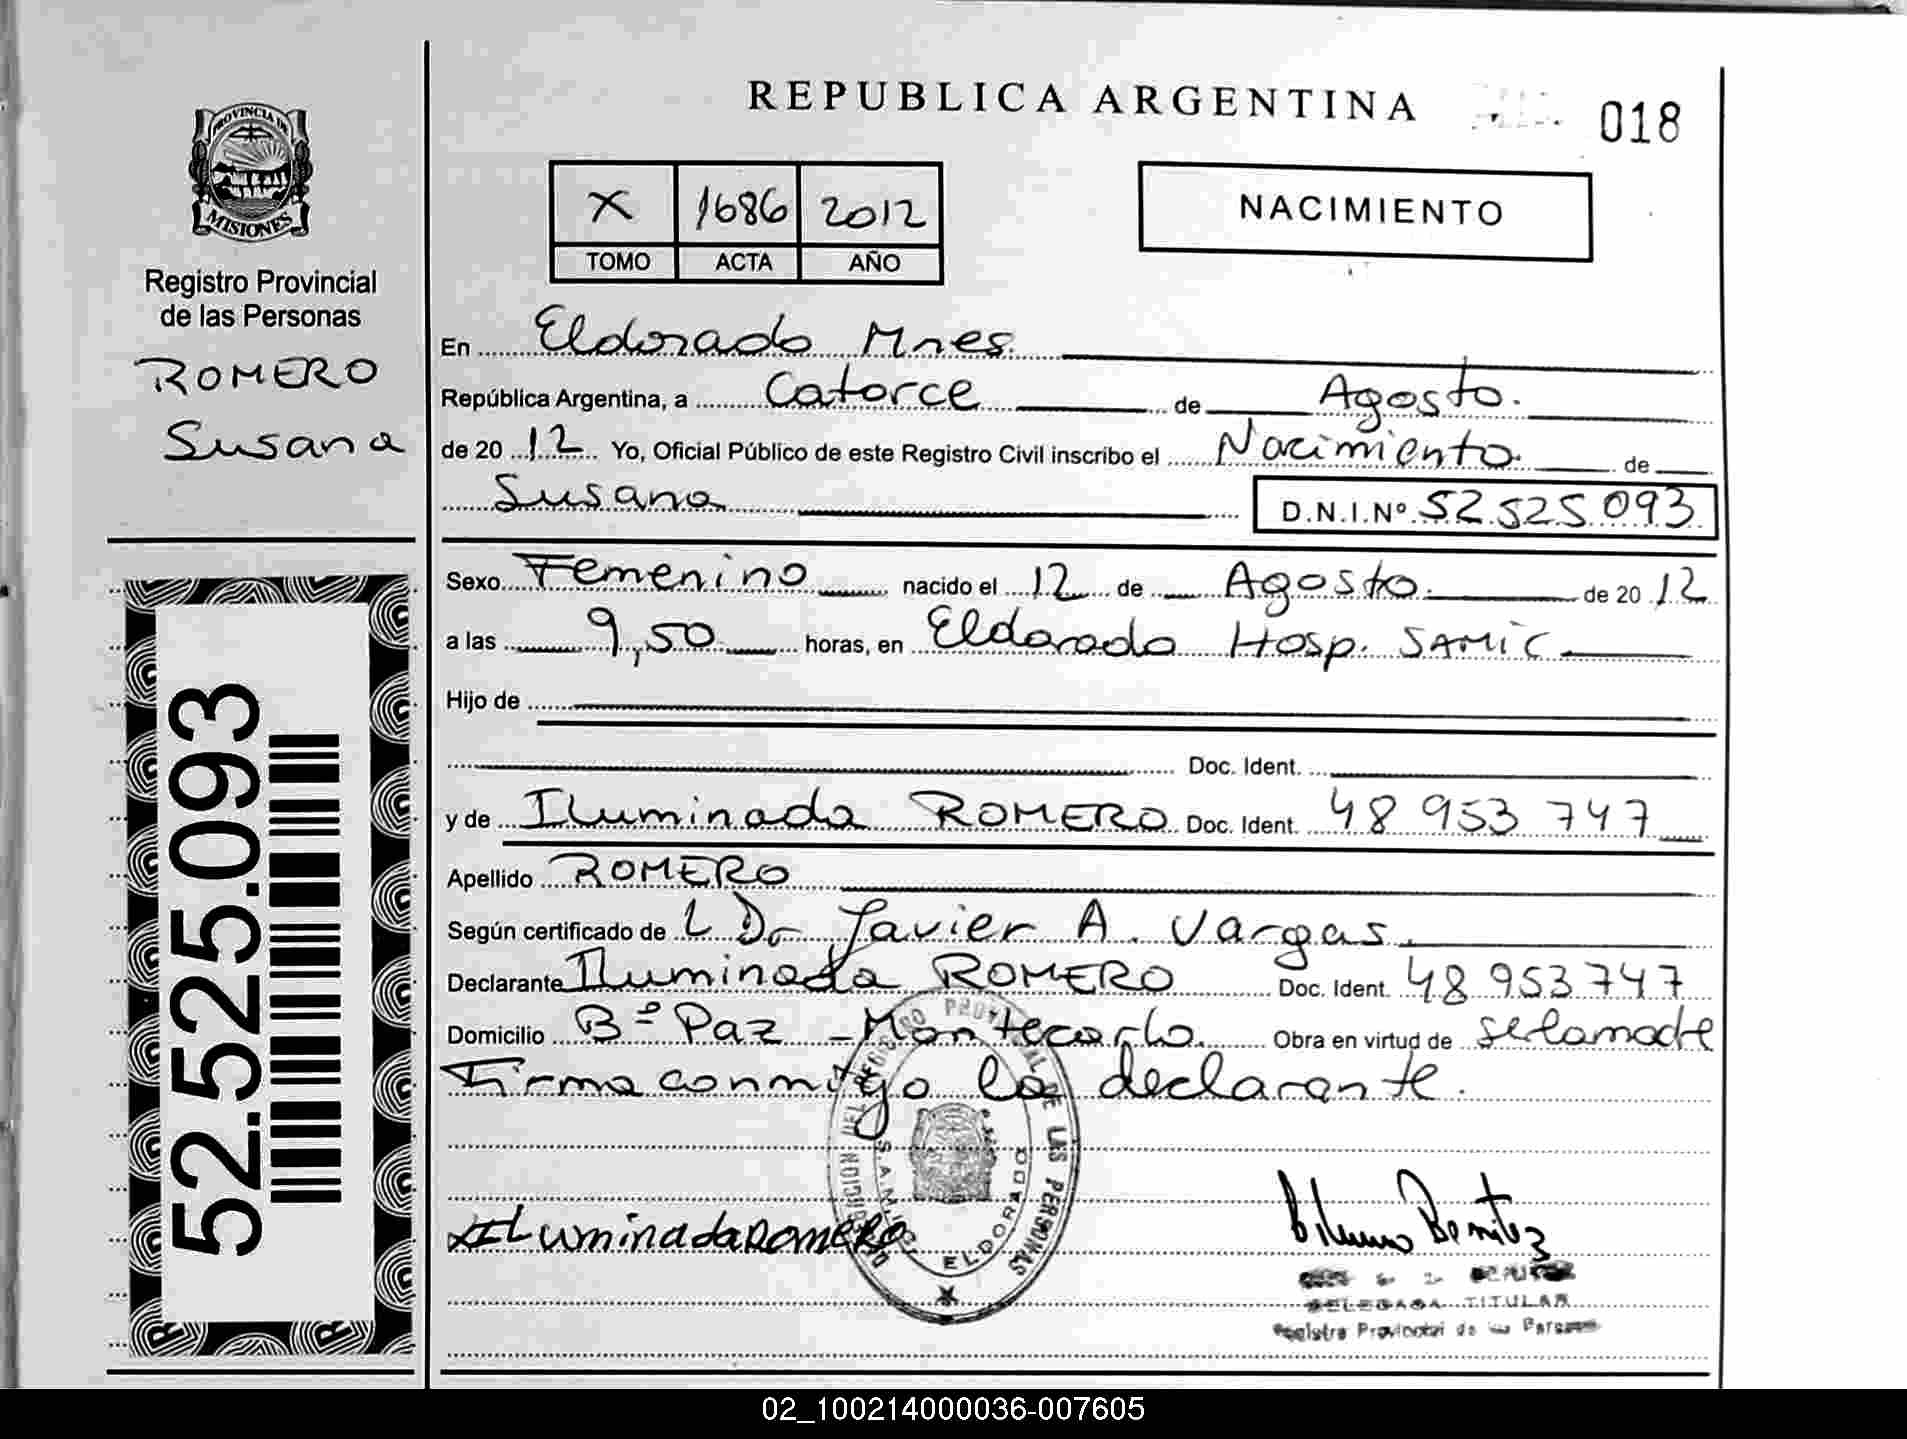 REPUBLICA ARGENTINA
018
PROVINCIA DE
MISIONES
Registro Provincial
de las Personas
ROMERO
Susana
X 1686 2012
TOMO ACTA AÑO
NACIMIENTO
En Eldorado Mnes.
República Argentina, a Catorce de Agosto.
de 20 12 Yo, Oficial Público de este Registro Civil inscribo el Nacimiento de
Susana D.N.I.Nº 52.525.093
Sexo Femenino nacido el 12 de Agosto de 20 12
a las 9,50 horas, en Eldorado Hosp. SAMIC
Hijo de
Doc. Ident.
y de Iluminada ROMERO Doc. Ident. 48 953 747
Apellido ROMERO
Según certificado de L Dr Javier A. Vargas.
Declarante Iluminada ROMERO Doc. Ident. 48 953 747
Domicilio Bº Paz - Montecarlo. Obra en virtud de
Firma conmigo la declarante.
52.525.093
DE LAS PERSONAS
S.A.M.I.C.
ELDORADO
Iluminada Romero
Benitez
DELEGADA TITULAR
Registro Provincial de las Personas
02_100214000036-007605